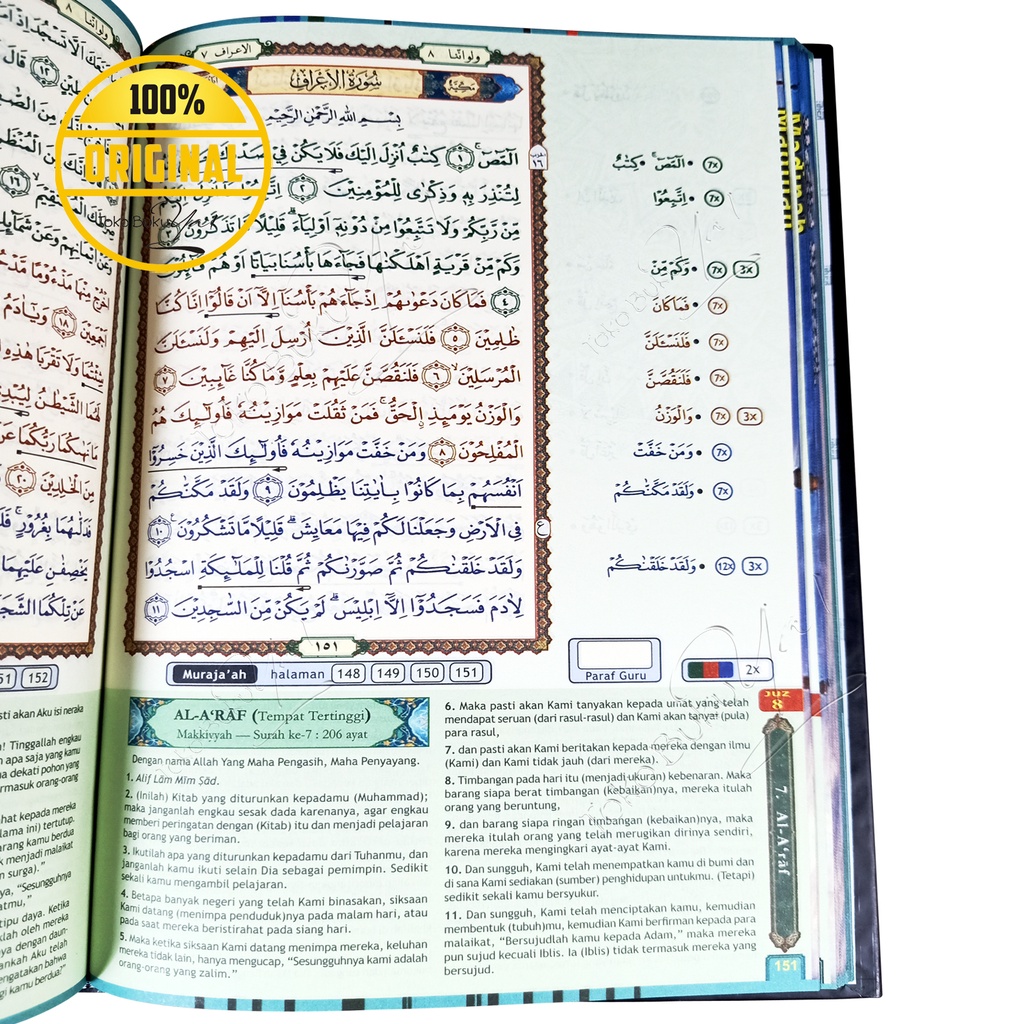 الاعراف ٧
ولواننا ٨
سُورَةُ الْأَعْرَافِ
مكية
بِسْمِ اللهِ الرَّحْمٰنِ الرَّحِيْمِ
الٓمّٓصٓ ۚ ﴿١﴾ كِتٰبٌ اُنْزِلَ اِلَيْكَ فَلَا يَكُنْ فِيْ
لِتُنْذِرَ بِهٖ وَذِكْرٰى لِلْمُؤْمِنِيْنَ ﴿٢﴾ اِتَّبِعُوْا
مِّنْ رَّبِّكُمْ وَلَا تَتَّبِعُوْا مِنْ دُوْنِهٖٓ اَوْلِيَاۤءَۗ قَلِيْلًا مَّا تَذَكَّرُوْنَ ﴿٣﴾
وَكَمْ مِّنْ قَرْيَةٍ اَهْلَكْنٰهَا فَجَاۤءَهَا بَأْسُنَا بَيَاتًا اَوْ هُمْ قَاۤىِٕلُوْنَ
﴿٤﴾ فَمَا كَانَ دَعْوٰىهُمْ اِذْ جَاۤءَهُمْ بَأْسُنَآ اِلَّآ اَنْ قَالُوْٓا اِنَّا كُنَّا
ظٰلِمِيْنَ ﴿٥﴾ فَلَنَسْـَٔلَنَّ الَّذِيْنَ اُرْسِلَ اِلَيْهِمْ وَلَنَسْـَٔلَنَّ
الْمُرْسَلِيْنَۙ ﴿٦﴾ فَلَنَقُصَّنَّ عَلَيْهِمْ بِعِلْمٍ وَّمَا كُنَّا غَاۤىِٕبِيْنَ ﴿٧﴾
وَالْوَزْنُ يَوْمَىِٕذِ ࣙالْحَقُّۚ فَمَنْ ثَقُلَتْ مَوَازِيْنُهٗ فَاُولٰۤىِٕكَ هُمُ
الْمُفْلِحُوْنَ ﴿٨﴾ وَمَنْ خَفَّتْ مَوَازِيْنُهٗ فَاُولٰۤىِٕكَ الَّذِيْنَ خَسِرُوْٓا
اَنْفُسَهُمْ بِمَا كَانُوْا بِاٰيٰتِنَا يَظْلِمُوْنَ ﴿٩﴾ وَلَقَدْ مَكَّنّٰكُمْ
فِى الْاَرْضِ وَجَعَلْنَا لَكُمْ فِيْهَا مَعَايِشَۗ قَلِيْلًا مَّا تَشْكُرُوْنَ ﴿١٠﴾
وَلَقَدْ خَلَقْنٰكُمْ ثُمَّ صَوَّرْنٰكُمْ ثُمَّ قُلْنَا لِلْمَلٰۤىِٕكَةِ اسْجُدُوْا
لِاٰدَمَ فَسَجَدُوْٓا اِلَّآ اِبْلِيْسَۗ لَمْ يَكُنْ مِّنَ السّٰجِدِيْنَ ﴿١١﴾
١٥١
الٓمّٓصٓ ۚ • كِتٰبٌ 7x
اِتَّبِعُوْا • 7x
وَكَمْ مِّنْ • 7x 3x
فَمَا كَانَ • 7x
فَلَنَسْـَٔلَنَّ • 7x
فَلَنَقُصَّنَّ • 7x
وَالْوَزْنُ • 7x 3x
وَمَنْ خَفَّتْ • 7x
وَلَقَدْ مَكَّنّٰكُمْ • 7x
وَلَقَدْ خَلَقْنٰكُمْ • 12x 3x
Muraja'ah halaman 148 149 150 151
Paraf Guru
2x
AL-A'RĀF (Tempat Tertinggi)
Makkiyyah — Surah ke-7 : 206 ayat
Dengan nama Allah Yang Maha Pengasih, Maha Penyayang.
1. Alif Lām Mīm Ṣād.
2. (Inilah) Kitab yang diturunkan kepadamu (Muhammad);
maka janganlah engkau sesak dada karenanya, agar engkau
memberi peringatan dengan (Kitab) itu dan menjadi pelajaran
bagi orang yang beriman.
3. Ikutilah apa yang diturunkan kepadamu dari Tuhanmu, dan
janganlah kamu ikuti selain Dia sebagai pemimpin. Sedikit
sekali kamu mengambil pelajaran.
4. Betapa banyak negeri yang telah Kami binasakan, siksaan
Kami datang (menimpa penduduk)nya pada malam hari, atau
pada saat mereka beristirahat pada siang hari.
5. Maka ketika siksaan Kami datang menimpa mereka, keluhan
mereka tidak lain, hanya mengucap, “Sesungguhnya kami adalah
orang-orang yang zalim.”
6. Maka pasti akan Kami tanyakan kepada umat yang telah
mendapat seruan (dari rasul-rasul) dan Kami akan tanyai (pula)
para rasul,
7. dan pasti akan Kami beritakan kepada mereka dengan ilmu
(Kami) dan Kami tidak jauh (dari mereka).
8. Timbangan pada hari itu (menjadi ukuran) kebenaran. Maka
barang siapa berat timbangan (kebaikan)nya, mereka itulah
orang yang beruntung,
9. dan barang siapa ringan timbangan (kebaikan)nya, maka
mereka itulah orang yang telah merugikan dirinya sendiri,
karena mereka mengingkari ayat-ayat Kami.
10. Dan sungguh, Kami telah menempatkan kamu di bumi dan
di sana Kami sediakan (sumber) penghidupan untukmu. (Tetapi)
sedikit sekali kamu bersyukur.
11. Dan sungguh, Kami telah menciptakan kamu, kemudian
membentuk (tubuh)mu, kemudian Kami berfirman kepada para
malaikat, “Bersujudlah kamu kepada Adam,” maka mereka
pun sujud kecuali Iblis. Ia (Iblis) tidak termasuk mereka yang
bersujud.
JUZ
8
7. Al-A'rāf
151
Madinah
100%
ORIGINAL
51 152